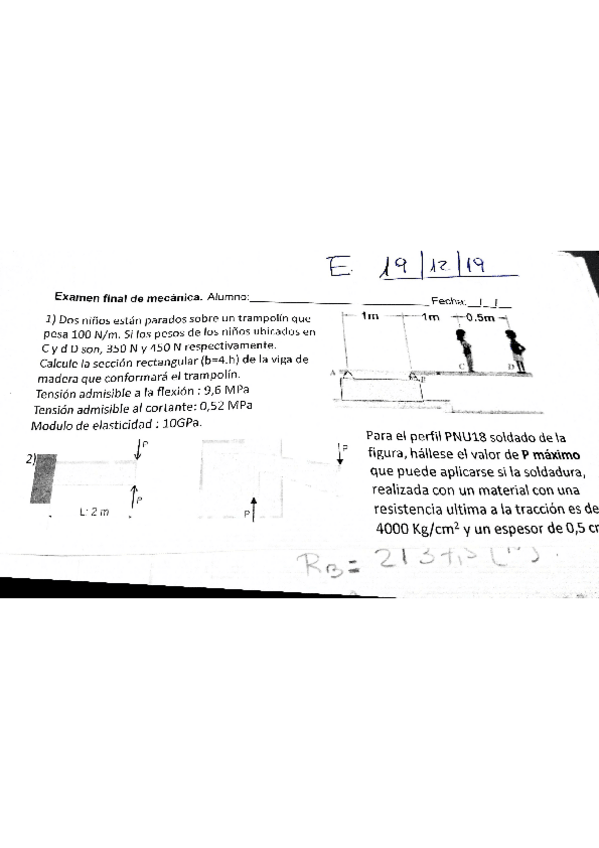 E 19/12/19
Examen final de mecánica. Alumno:____________ Fecha:__/__/__
1) Dos niños están parados sobre un trampolín que
pesa 100 N/m. Si los pesos de los niños ubicados en
C y d D son, 350 N y 450 N respectivamente.
Calcule la sección rectangular (b=4.h) de la viga de
madera que conformará el trampolín.
Tensión admisible a la flexión : 9,6 MPa
Tensión admisible al cortante: 0,52 MPa
Modulo de elasticidad : 10GPa.
1m 1m 0.5m
A B C D
2)
P
P
L: 2 m
P
P
Para el perfil PNU18 soldado de la
figura, hállese el valor de P máximo
que puede aplicarse si la soldadura,
realizada con un material con una
resistencia ultima a la tracción es de
4000 Kg/cm² y un espesor de 0,5 cr
RB =